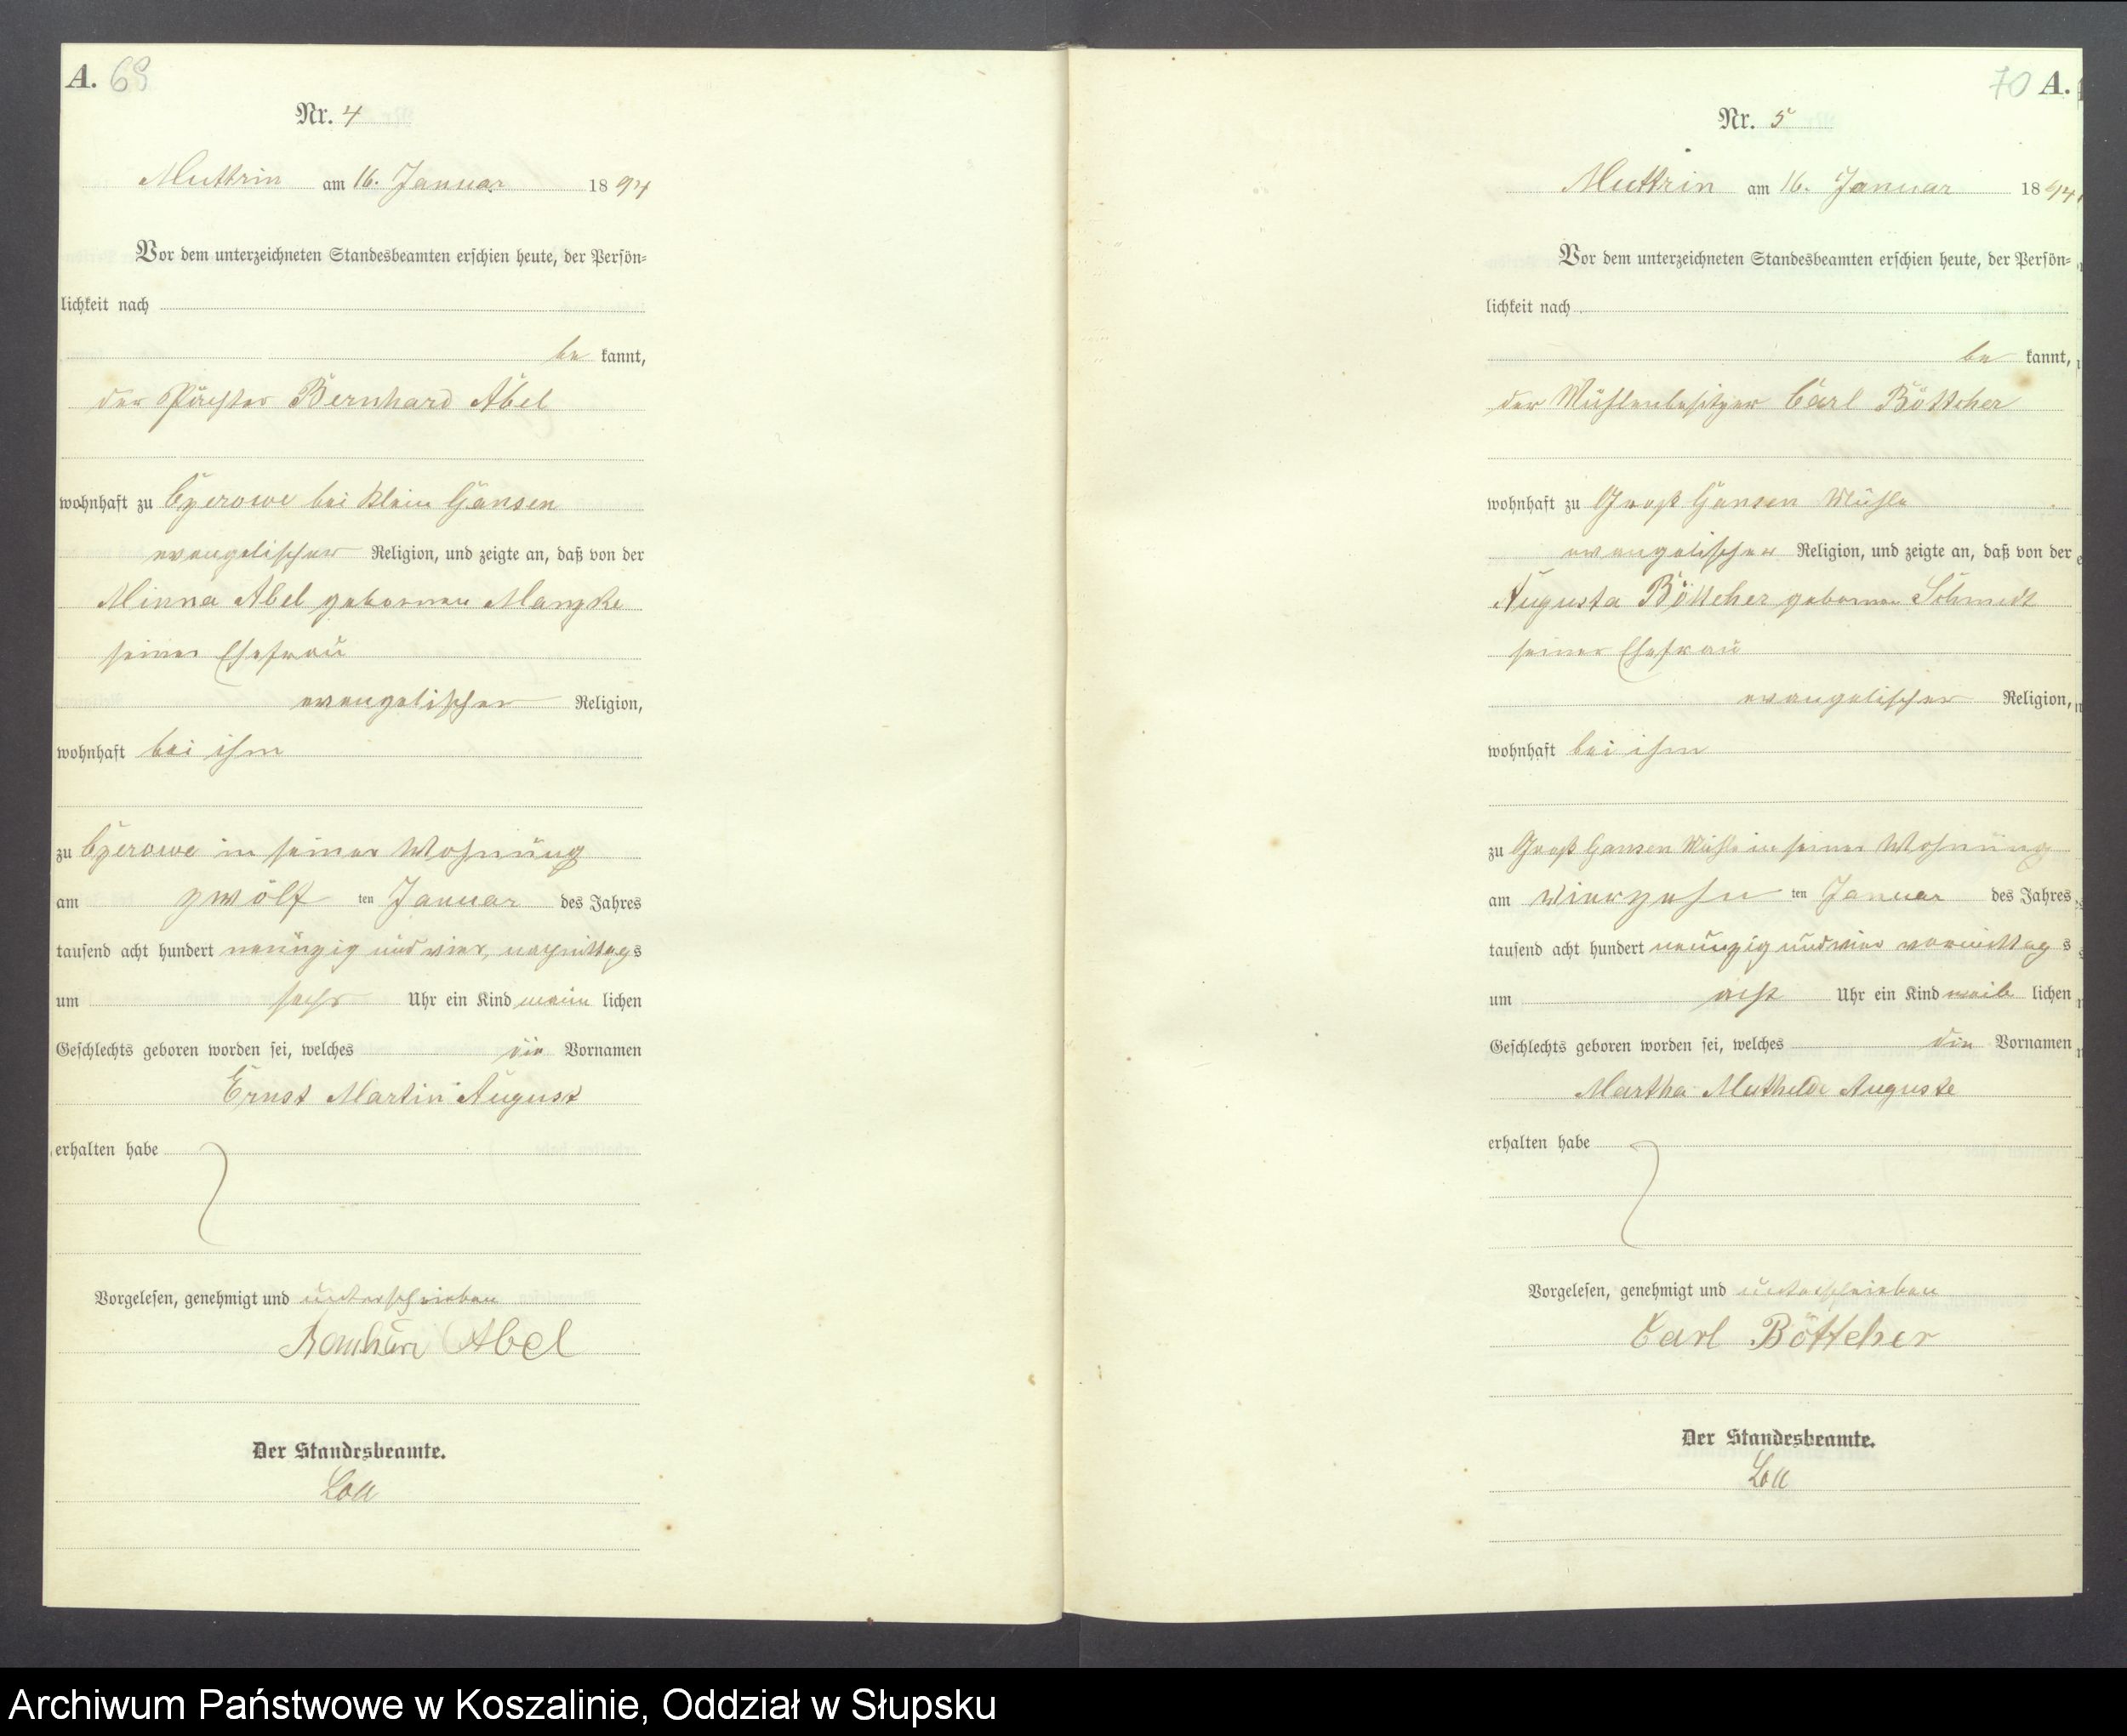 A. 69
Nr. 4
Muttrin am 16. Januar 1894
Vor dem unterzeichneten Standesbeamten erschien heute, der Persön-
lichkeit nach
be kannt,
der Pächter Bernhard Abel
wohnhaft zu Czerowe bei Klein Gansen
evangelischer Religion, und zeigte an, daß von der
Minna Abel geborenen Manzke
seiner Ehefrau
evangelischer Religion,
wohnhaft bei ihm
zu Czerowe in seiner Wohnung
am zwölf ten Januar des Jahres
tausend acht hundert neunzig und vier, nachmittags
um sechs Uhr ein Kind männ lichen
Geschlechts geboren worden sei, welches die Vornamen
Ernst Martin August
erhalten habe
Vorgelesen, genehmigt und unterschrieben
Bernhard Abel
Der Standesbeamte.
70 A.
Nr. 5
Muttrin am 16. Januar 1894
Vor dem unterzeichneten Standesbeamten erschien heute, der Persön-
lichkeit nach
be kannt,
der Mühlenbesitzer Carl Böttcher
wohnhaft zu Groß Gansen Mühle
evangelischer Religion, und zeigte an, daß von der
Augusta Böttcher geborenen Schmidt
seiner Ehefrau
evangelischer Religion,
wohnhaft bei ihm
zu Groß Gansen Mühle in seiner Wohnung
am vierzehn ten Januar des Jahres
tausend acht hundert neunzig und vier vormittags
um acht Uhr ein Kind weib lichen
Geschlechts geboren worden sei, welches die Vornamen
Martha Mathilde Auguste
erhalten habe
Vorgelesen, genehmigt und unterschrieben
Carl Böttcher
Der Standesbeamte.
Archiwum Państwowe w Koszalinie, Oddział w Słupsku